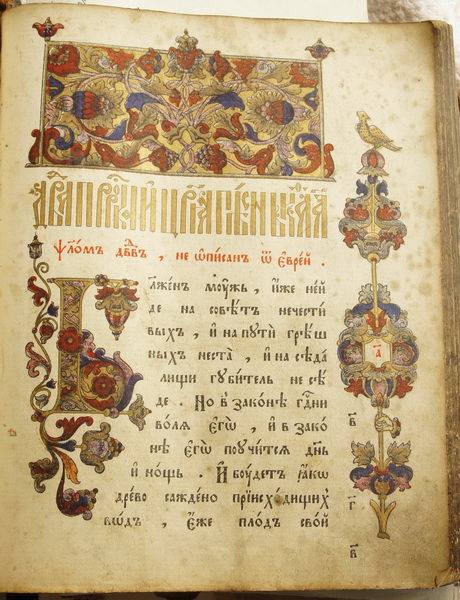 дв҃да прⷪ҇рка и цр҃ѧ пѣснь
ѱало́мъ дв҃дъ , не ѡ҆пи́санъ ѿ є҆вре́й .
Бл҃же́нъ мѹ́жь , и҆́же не и҆́
де на совѣ́тъ нечести́
выхъ , и҆ на пути̑ грѣ́ш
ныхъ неста̀ , и҆ на сѣда́
лищи губи́тель не сѣ́
де . Но в҆ зако́нѣ гдⷭ҇ни
во́лѧ є҆гѡ̀ , и҆ в҆ зако́
нѣ є҆гѡ̀ поучи́тсѧ дн҃ь
и҆ но́щь . И҆ бѹ́детъ ꙗ҆́кѡ
дре́во сажде́но при и҆схо́дищихъ
во́дъ , є҆́же пло́дъ сво́й
а҃
в҃
г҃